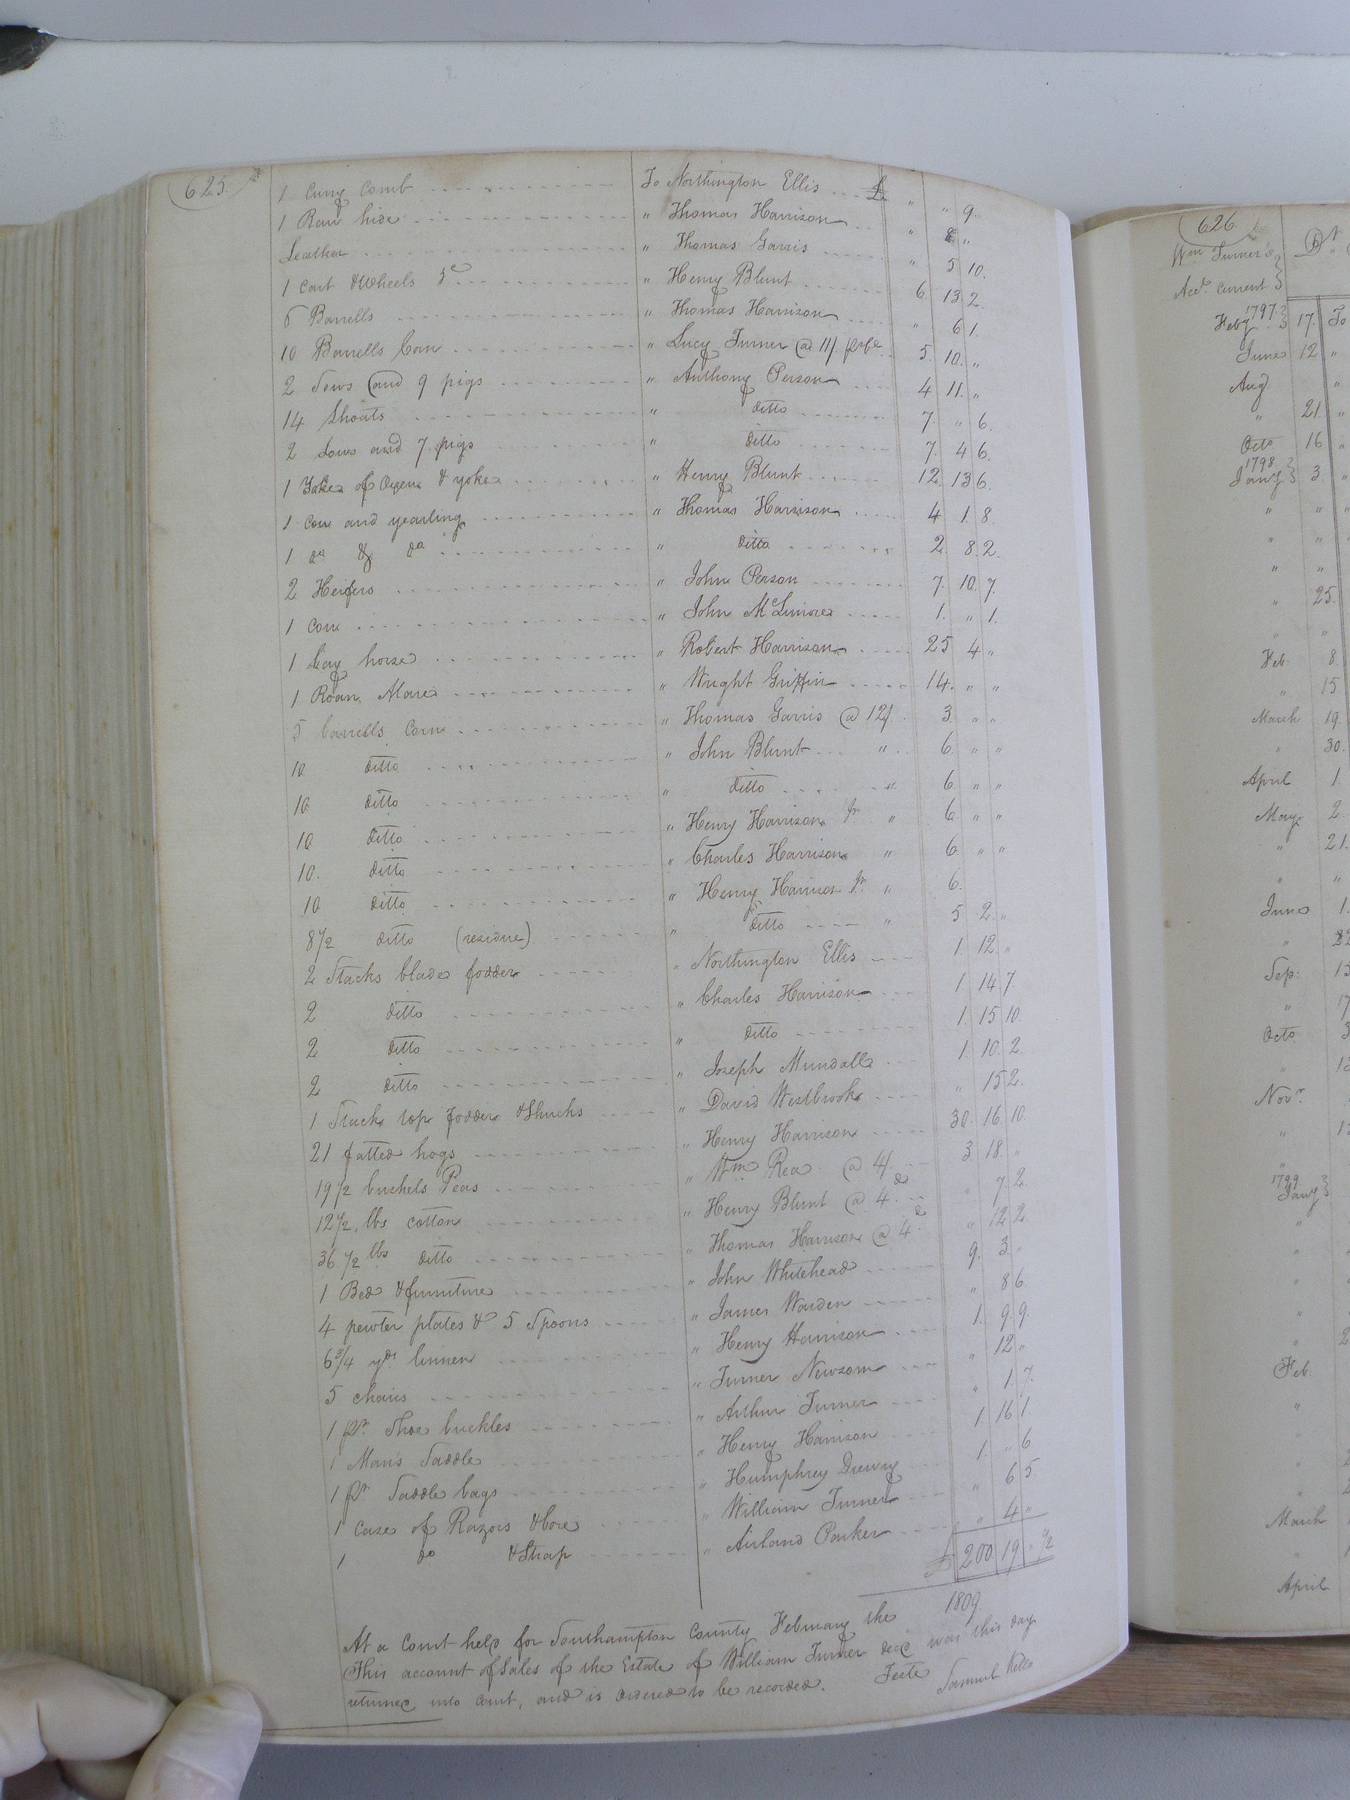 625.
1 Curry Comb To Northington Ellis £ " " 9.
1 Raw hide " Thomas Harrison " " "
Leather " Thomas Garris " 5 10.
1 Cart & Wheels &c " Henry Blunt 6 13 2
6 Barrells " Thomas Harrison " 6 1.
10 Barrells Corn " Lucy Turner @ 11/ 5. 10. "
2 Sows and 9 pigs " Anthony Person 4 11. "
14 Shoats " ditto 7. " 6.
2 Sows and 7 pigs " ditto 7. 4 6.
1 Yoke of Oxen & yoke " Henry Blunt 12. 13 6.
1 Cow and yearling " Thomas Harrison 4 1. 8.
1 do & do " ditto 2. 8. 2.
2 Heifers " John Person 7. 10. 7.
1 Cow " John 1. " 1.
1 bay horse " Robert Harrison 25 4 "
1 Roan Mare " Wright Griffin 14. " "
5 barrells Corn " Thomas Garris @ 12/ 3. " "
10 ditto " John Blunt " 6. " "
10 ditto " ditto " 6. " "
10 ditto " Henry Harrison Jr " 6. " "
10. ditto " Charles Harrison " 6. " "
10 ditto " Henry Harrison Jr. " 6.
8 1/2 ditto (residue) " ditto " 5 2. "
2 Stacks blade fodder " Northington Ellis 1. 12. "
2 ditto " Charles Harrison 1. 14 7
2 ditto " ditto 1. 15 10.
2 ditto " Joseph Mundall 1. 10. 2
1 Stack top fodder & Shucks " David Westbrook " 15 2.
21 fatted hogs " Henry Harrison 30. 16. 10.
19 1/2 bushels Peas " Wm Rea @ 4/. 3 18. "
12 1/2 lbs cotton " Henry Blunt @ 4d " 7. 2.
36 1/2 lbs ditto " Thomas Harrison @ 4d " 12 2.
1 Bed & furniture " John Whitehead 9. 3. "
4 pewter plates & 5 Spoons " James Warden " 8 6
6 3/4 yds linnen " Henry Harrison 1. 9. 9.
5 chairs " Turner Newsom " 12 "
1 pr Shoe buckles " Arthur Turner " 1. 7.
1 Mans Saddle " Henry Harrison 1 16 1.
1 pr Saddle bags " Humphrey Drewry 1. " 6
1 case of Razors & hone " William Turner " 6 5.
1 do & Strap " Parker " 4 "
£ 200 19 " 1/2
At a Court held for Southampton County February the 1809
This account of Sales of the Estate of William Turner decd was this day
returned into court, and is ordered to be recorded. Teste Samuel Kello
626
Wm Turner's Dr
Acct. current
Feby 1797. 17. To
June 12 "
Aug "
" 21. "
Octo 16 "
1798
Jany 3. "
" " "
" "
" "
" 25.
" "
Feb. 8.
" 15
March 19.
" 30.
April 1.
May 2.
" 21.
" "
June 1.
" 22
Sep:
" 17
Octo 3
"
Novr.
"
"
1799
Jany
"
"
"
"
"
Feb.
"
"
"
March
"
April